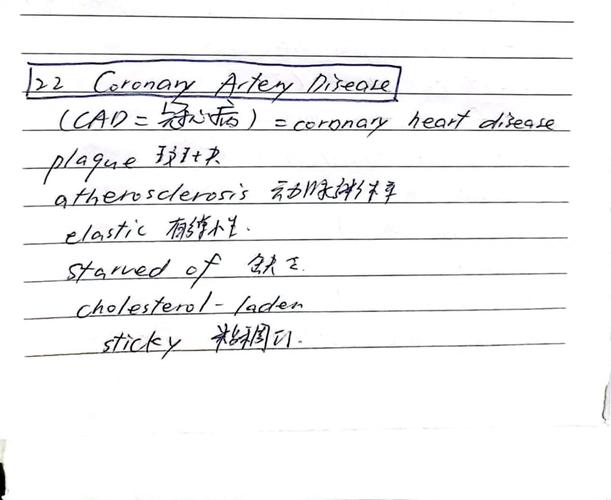 22 Coronary Artery Disease
(CAD = 冠心病) = coronary heart disease
plaque 斑块
atherosclerosis 动脉粥样
elastic 有弹性.
starved of 缺乏.
cholesterol-laden
sticky 粘稠的.